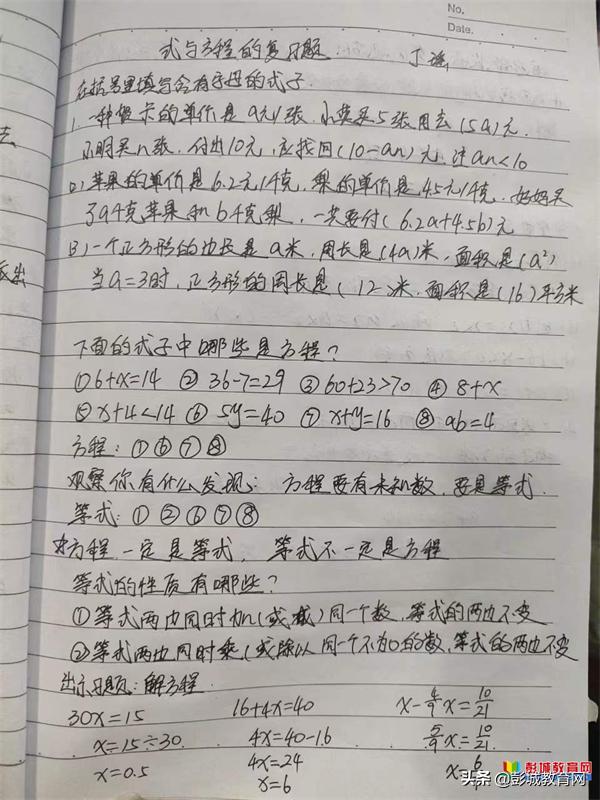 No.
Date.
式与方程的复习题
丁瑶
在括号里填写含有字母的式子.
1. 一种贺卡的单价是a元/张. 小英买5张用去(5a)元.
小明买n张. 付出10元, 应找回(10-an)元. 注an<10
(2)苹果的单价是6.2元/千克, 梨的单价是4.5元/千克. 妈妈买
了a千克苹果和b千克梨, 一共要付(6.2a+4.5b)元
(3)一个正方形的边长是a米, 周长是(4a)米, 面积是(a²)
当a=3时, 正方形的周长是(12)米, 面积是(16)平方米
下面的式子中哪些是方程?
①6+x=14 ②36-7=29 ③60+23>70 ④8+x
⑤x+4<14 ⑥5y=40 ⑦x+y=16 ⑧ab=4
方程: ①⑥⑦⑧
观察你有什么发现: 方程要有未知数, 要是等式.
等式: ①②⑥⑦⑧
☆方程一定是等式, 等式不一定是方程
等式的性质有哪些?
①等式两边同时加(或减)同一个数, 等式的两边不变
②等式两边同时乘(或除以同一个不为0的数, 等式的两边不变
出示习题: 解方程
30x=15 16+4x=40 x-4/9x=10/21
x=15÷30 4x=40-16 5/9x=10/21
x=0.5 4x=24 x=6
x=6
彭城教育网
头条 @彭城教育网